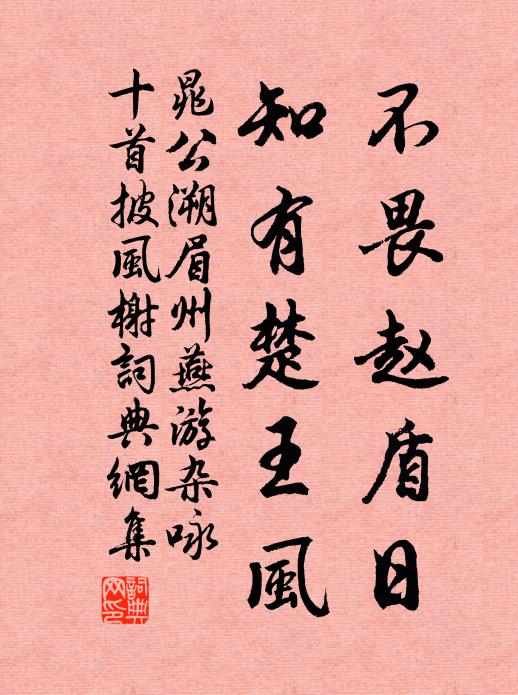 不畏赵盾日
知有楚王风
晁公溯眉州燕游杂咏
十首披風榭詞典網集
詞典網印